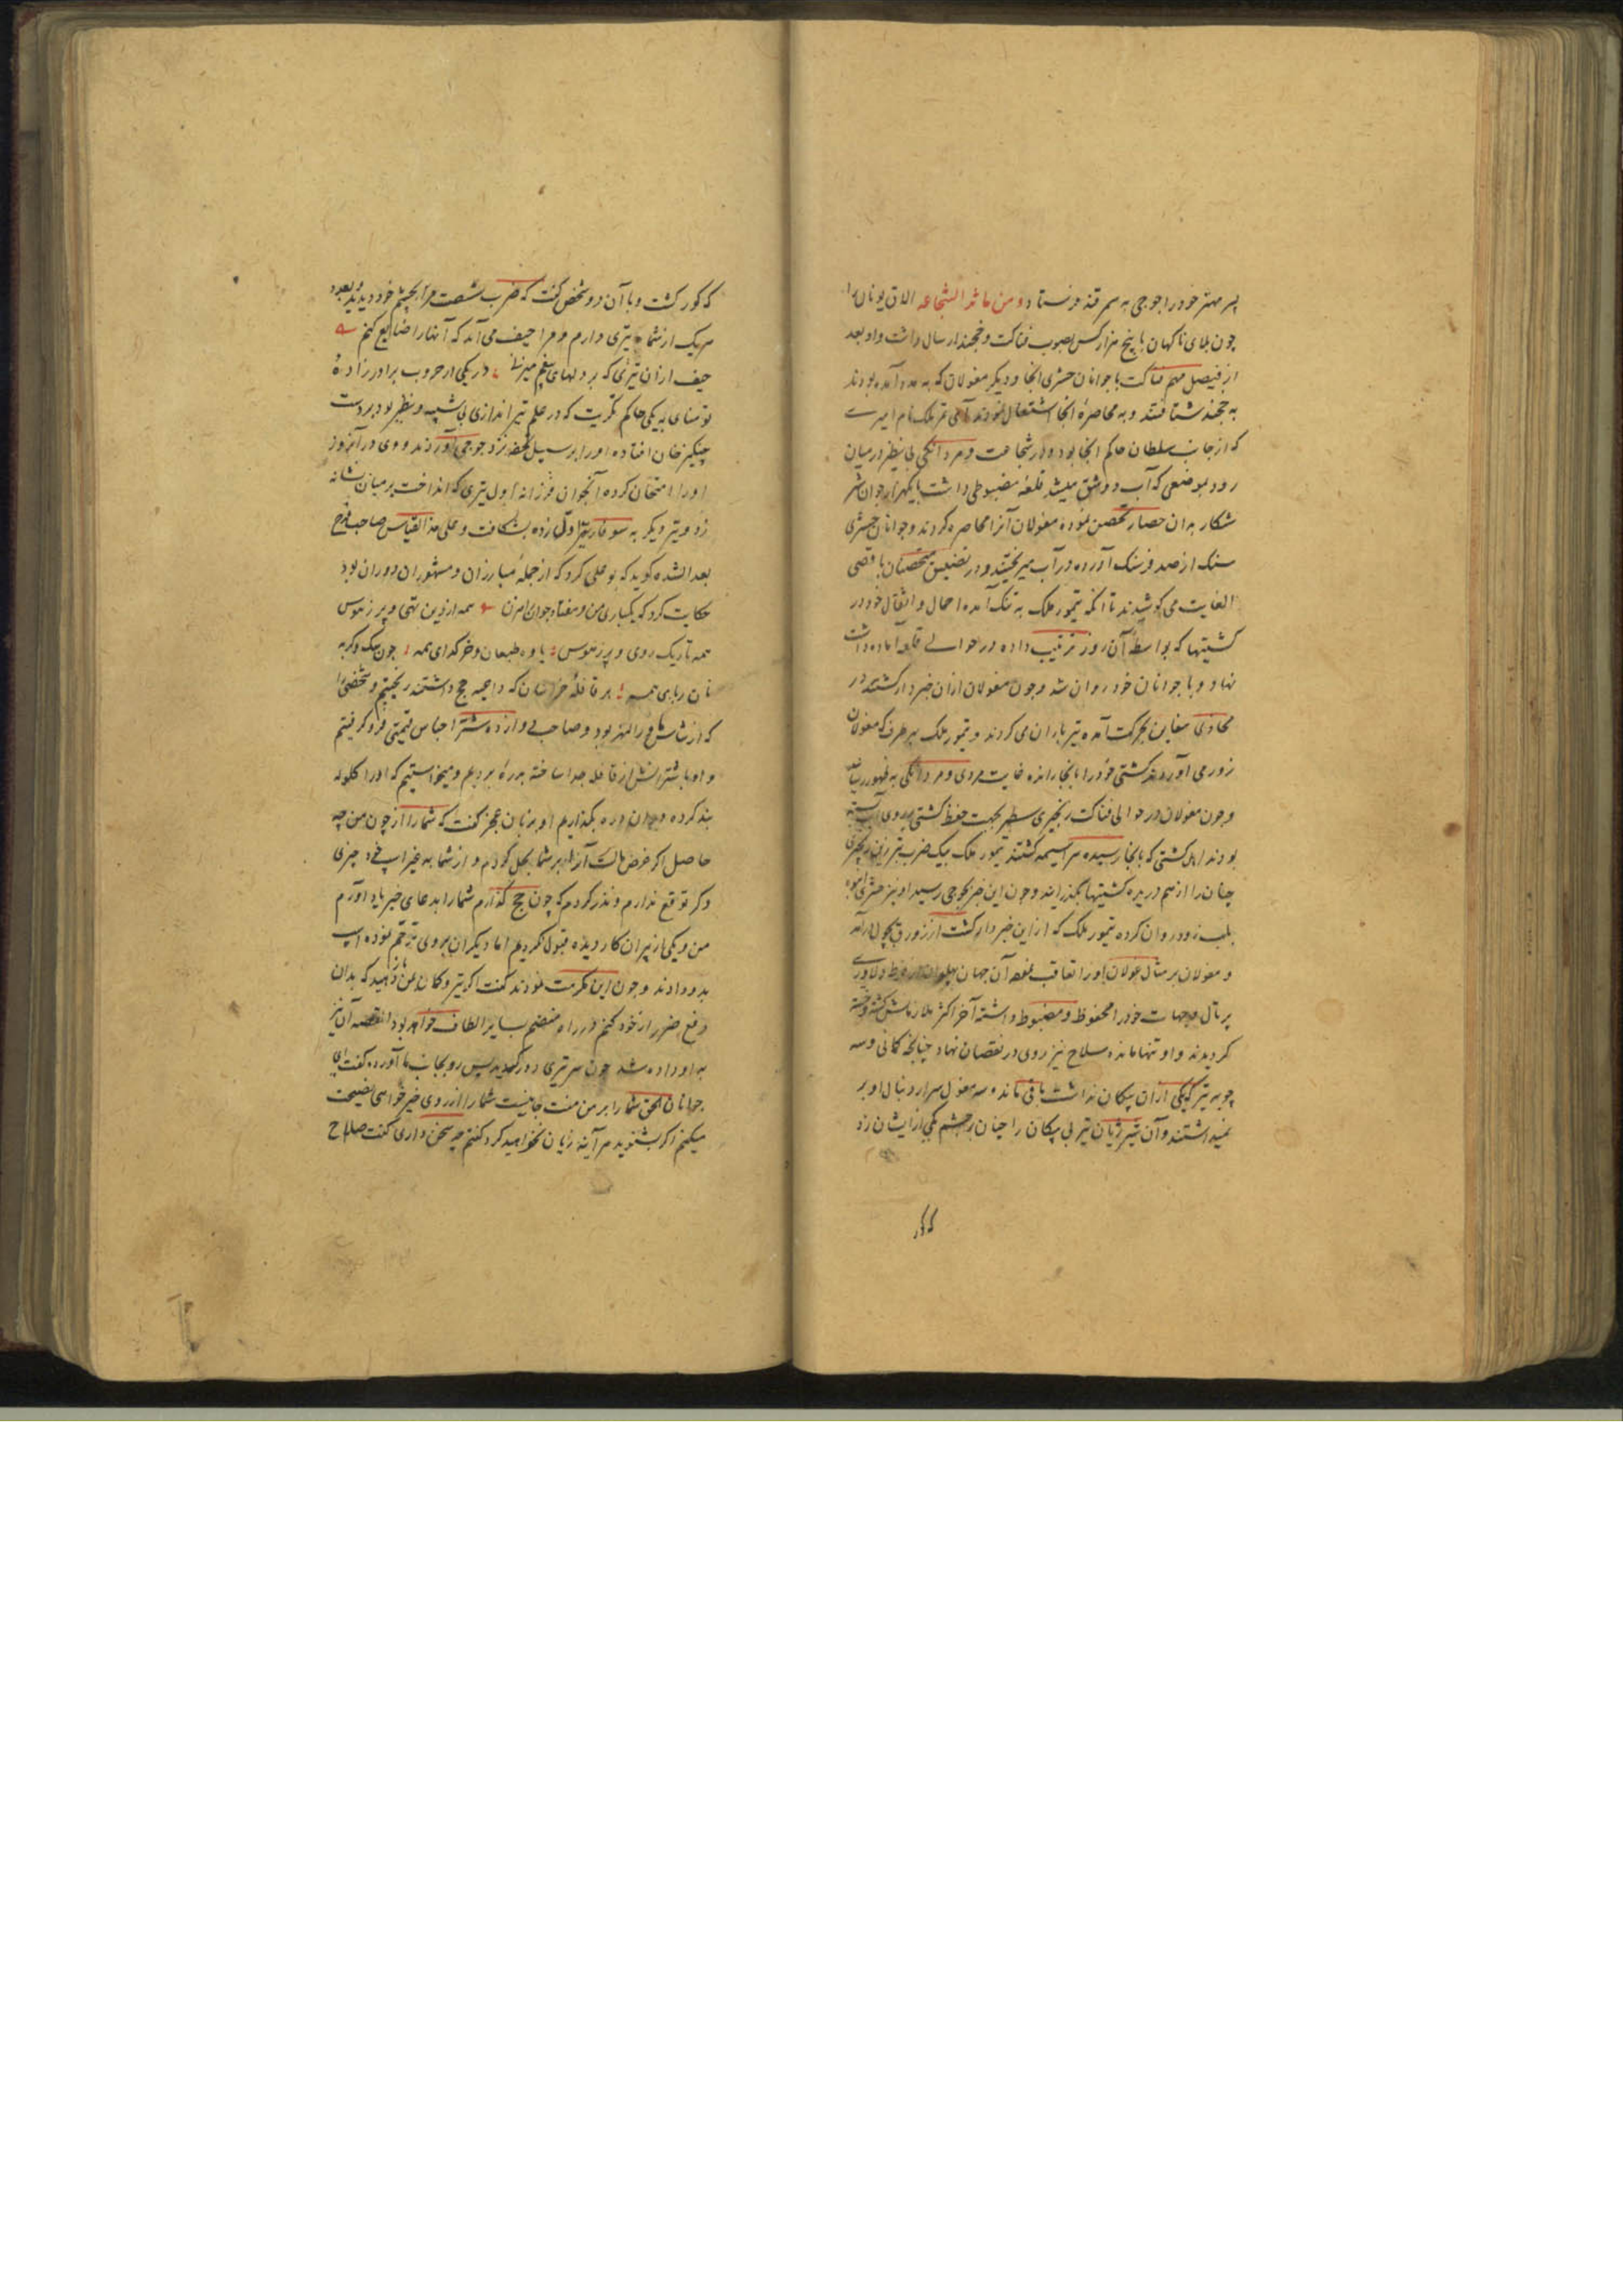 پسر مهتر خود را جوجی به سمرقند فرستاد و من مآثر الشجاعه الاق نویان را
چون بلای ناکهان با پنج هزار کس بصوب فناکت و خجند ارسال داشت و او بعد
از فیصل مهم فناکت با جوانان حشری انجا و دیکر مغولان که به مدد آمده بودند
به خجند شتافتند و به محاصرهٔ انجا اشتغال نمودند تمر ملک نام امیرے
که از جانب سلطان حاکم انجا بود و در شجاعت و مردانکی بی نظیر در میان
رود بموضعی که آب دو شق میشد قلعهٔ مضبوطی داشت با یکهزار جوان شیر
شکار به ان حصار تحصن نموده مغولان آنرا محاصره کردند و جوانان حشری
سنک از صد فرسنک آورده در آب میریختند و در تضییق متحصنان باقصی
الغایت می کوشیدند تا انکه تیمور ملک به تنک آمده احمال و اثقال خود در
کشتیها که بواسطهٔ آن روز ترتیب داده در حوالے قلعه آماده داشت
نهاد و با جوانان خود روان شد و چون مغولان ازان خبردار کشتند در
محاذی سفاین بحرکت آمده تیرباران می کردند و تیمور ملک بهر طرف که مغولان
زور می آوردند کشتی خود را بانجا رانده غایت مردی و مردانکی به ظهور رساند
و چون مغولان در حوالی فناکت زنجیری سطبر بجهت حفظ کشتی بر روی آب بسته
بودند اهل کشتی که بانجا رسیده سراسیمه کشتند تیمور ملک بیک ضرب تبرزین زنجیری
چنان را از هم دریده کشتیها بکذرانید و چون این خبر بجوجی رسید او نیز حشری انبوه
بلب رود روان کرده تیمور ملک که از این خبردار کشت از زورق بچول درآمد
و مغولان بر مثال غولان او را تعاقب نموده آن جهان پهلوان دلاورے
پرتال و جهات خود را محفوظ و مضبوط داشته آخر اکثر ملازمانش کشته و خسته
کردیدند و او تنها مانده سلاح نیز روی در نقصان نهاد چنانچه کمانی و سه
چوبه تیر که یکی ازان پیکان نداشت باقی مانده سه مغول سر از دنبال او بر
نمیداشتند و آن شیر ژیان تیر بی پیکان را چنان بر چشم یکی از ایشان زد
که کور کشت و با آن دو شخص کفت که ضرب شصت مرا بچشم خود دیدید و بعدد
هر یک از شما تیری دارم و مرا حیف می آید که آنها را ضایع کنم
حیف ازان تیری که بر دلهای بیغم میزنی در یکی از حروب برادرزادهٔ
نوشتای به یکی حاکم تکریت که در علم تیراندازی بی شبیه و نظیر بود بر دست
چنکیزخان افتاده او را بر سبیل تحفه نزد جوجی آوردند و وی در آنروز
او را امتحان کرده آنجوان فرزانه اول تیری که انداخت بر میان نشانه
زد و تیر دیکر به سوفار تیر اول زده بشکافت و علی هذا القیاس صاحب فرج
بعد الشده کوید که بوعلی کرد که از جملهٔ مبارزان و مشهوران دوران بود
حکایت کرد که یکباری من و هفتاد جوان راهزن همه از دین تهی و پر ز هوس
همه تاریک روی و پر ز هوس یاوه طبعان و خر کدای همه چون سک و کربه
نان ربای همه بر قافلهٔ خراسان که داعیه حج داشتند ریختیم و شخصی را
که از شاش ماوراالنهر بود و صاحب دوازده شتر اجناس قیمتی فرو کرفتیم
و او با شترانش از قافله جدا ساخته بدرهٔ بردیم و میخواستیم که او را کلوله
بند کرده در ان دره بکذاریم او بزبان عجز کفت که شما را از خون من چه
حاصل اکر غرض مالست آنرا بر شما بحل کردم و از شما به غیر اسپ خود چیزی
دکر توقع ندارم و نذر کردم که چون حج کذارم شما را به دعای خیر یاد آورم
من و یکی از پیران کاردیده قبول نکردیم اما دیکران بر وی ترحم نموده اسپ
بدو دادند و چون این مکرمت نمودند کفت اکر تیر و کمان بمن باز دهید که بدان
دفع ضرر از خود کنم در راه منضم بسایر الطاف خواهد بود القصه آن نیز
به او داده شد چون سر تیری دور کردید پس رو بجانب ما آورده کفت ای
جوانان الحق شما را بر من منت جانیست شما را از روی خیرخواهی نصیحت
میکنم اکر بشنوید هر آینه زیان نخواهید کرد کفتم چه سخن داری کفت صلاح